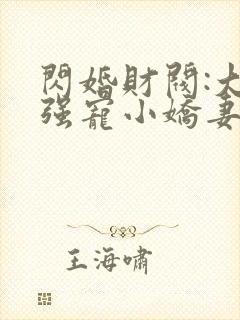 閃婚財閥:大
强寵小嬌妻
王海嘯